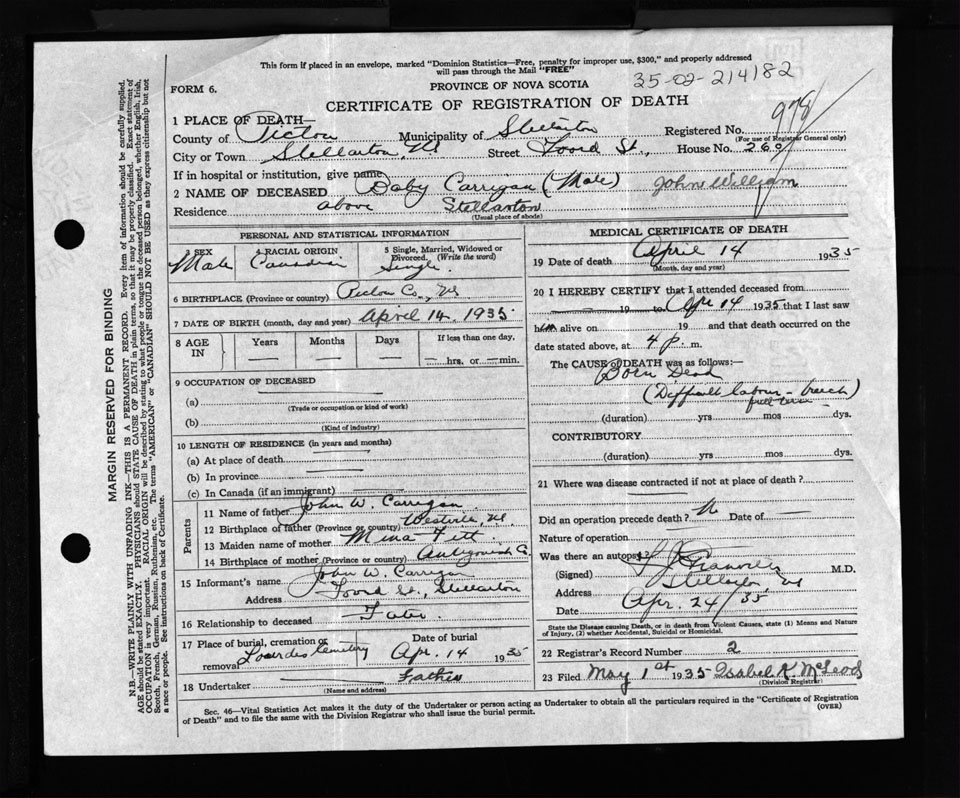 This form if placed in an envelope, marked "Dominion Statistics—Free, penalty for improper use, $300," and properly addressed
will pass through the Mail "FREE"
35-02-214182
FORM 6.
PROVINCE OF NOVA SCOTIA
CERTIFICATE OF REGISTRATION OF DEATH
978
1 PLACE OF DEATH—
County of Pictou Municipality of Stellarton Registered No.
(For use of Registrar General only)
City or Town Stellarton, NS Street Foord St., House No. 260
If in hospital or institution, give name
2 NAME OF DECEASED Baby Carrigan (Male) John William
Residence above Stellarton
(Usual place of abode)
PERSONAL AND STATISTICAL INFORMATION
3 SEX Male 4 RACIAL ORIGIN Canadian 5 Single, Married, Widowed or Divorced. (Write the word) Single.
6 BIRTHPLACE (Province or country) Pictou Co., NS
7 DATE OF BIRTH (month, day and year) April 14, 1935
8 AGE IN Years Months Days If less than one day, — hrs. or — min.
9 OCCUPATION OF DECEASED
(a)
(Trade or occupation or kind of work)
(b)
(Kind of industry)
10 LENGTH OF RESIDENCE (in years and months)
(a) At place of death
(b) In province
(c) In Canada (if an immigrant)
Parents
11 Name of father John W. Carrigan
12 Birthplace of father (Province or country) Westville, NS
13 Maiden name of mother Mina
14 Birthplace of mother (Province or country) Antigonish Co.
15 Informant's name John W. Carrigan
Address Foord St., Stellarton
16 Relationship to deceased Father
17 Place of burial, cremation or removal Lourdes Cemetery Date of burial Apr. 14 1935
18 Undertaker Father
(Name and address)
MEDICAL CERTIFICATE OF DEATH
19 Date of death April 14 1935
(Month, day and year)
20 I HEREBY CERTIFY that I attended deceased from
19 to Apr 14 1935 that I last saw
him alive on 19 and that death occurred on the
date stated above, at 4 p. m.
The CAUSE OF DEATH was as follows:—
Born Dead
(Difficult labour - breech)
full term -
(duration) yrs mos dys.
CONTRIBUTORY
(duration) yrs mos dys.
21 Where was disease contracted if not at place of death?
Did an operation precede death? N Date of —
Nature of operation
Was there an autopsy?
(Signed) M.D.
Address Stellarton, NS
Date Apr. 24/35
State the Disease causing Death, or in death from Violent Causes, state (1) Means and Nature
of Injury, (2) whether Accidental, Suicidal or Homicidal.
22 Registrar's Record Number 2
23 Filed May 1st 1935 Isabel K. McLeod
(Division Registrar)
Sec. 46—Vital Statistics Act makes it the duty of the Undertaker or person acting as Undertaker to obtain all the particulars required in the "Certificate of Registration
of Death" and to file the same with the Division Registrar who shall issue the burial permit.
(OVER)
MARGIN RESERVED FOR BINDING
N.B.—WRITE PLAINLY WITH UNFADING INK—THIS IS A PERMANENT RECORD. Every item of information should be carefully supplied.
AGE should be stated EXACTLY. PHYSICIANS should STATE CAUSE OF DEATH in plain terms, so that it may be properly classified. Exact statement of
OCCUPATION is very important. RACIAL ORIGIN will be described by stating to what people or tongue the deceased person belonged, whether English, Irish,
Scotch, French, German, Russian, Ruthenian, etc. The terms "AMERICAN" or "CANADIAN" SHOULD NOT BE USED as they express citizenship but not
a race or people. See instructions on back of Certificate.